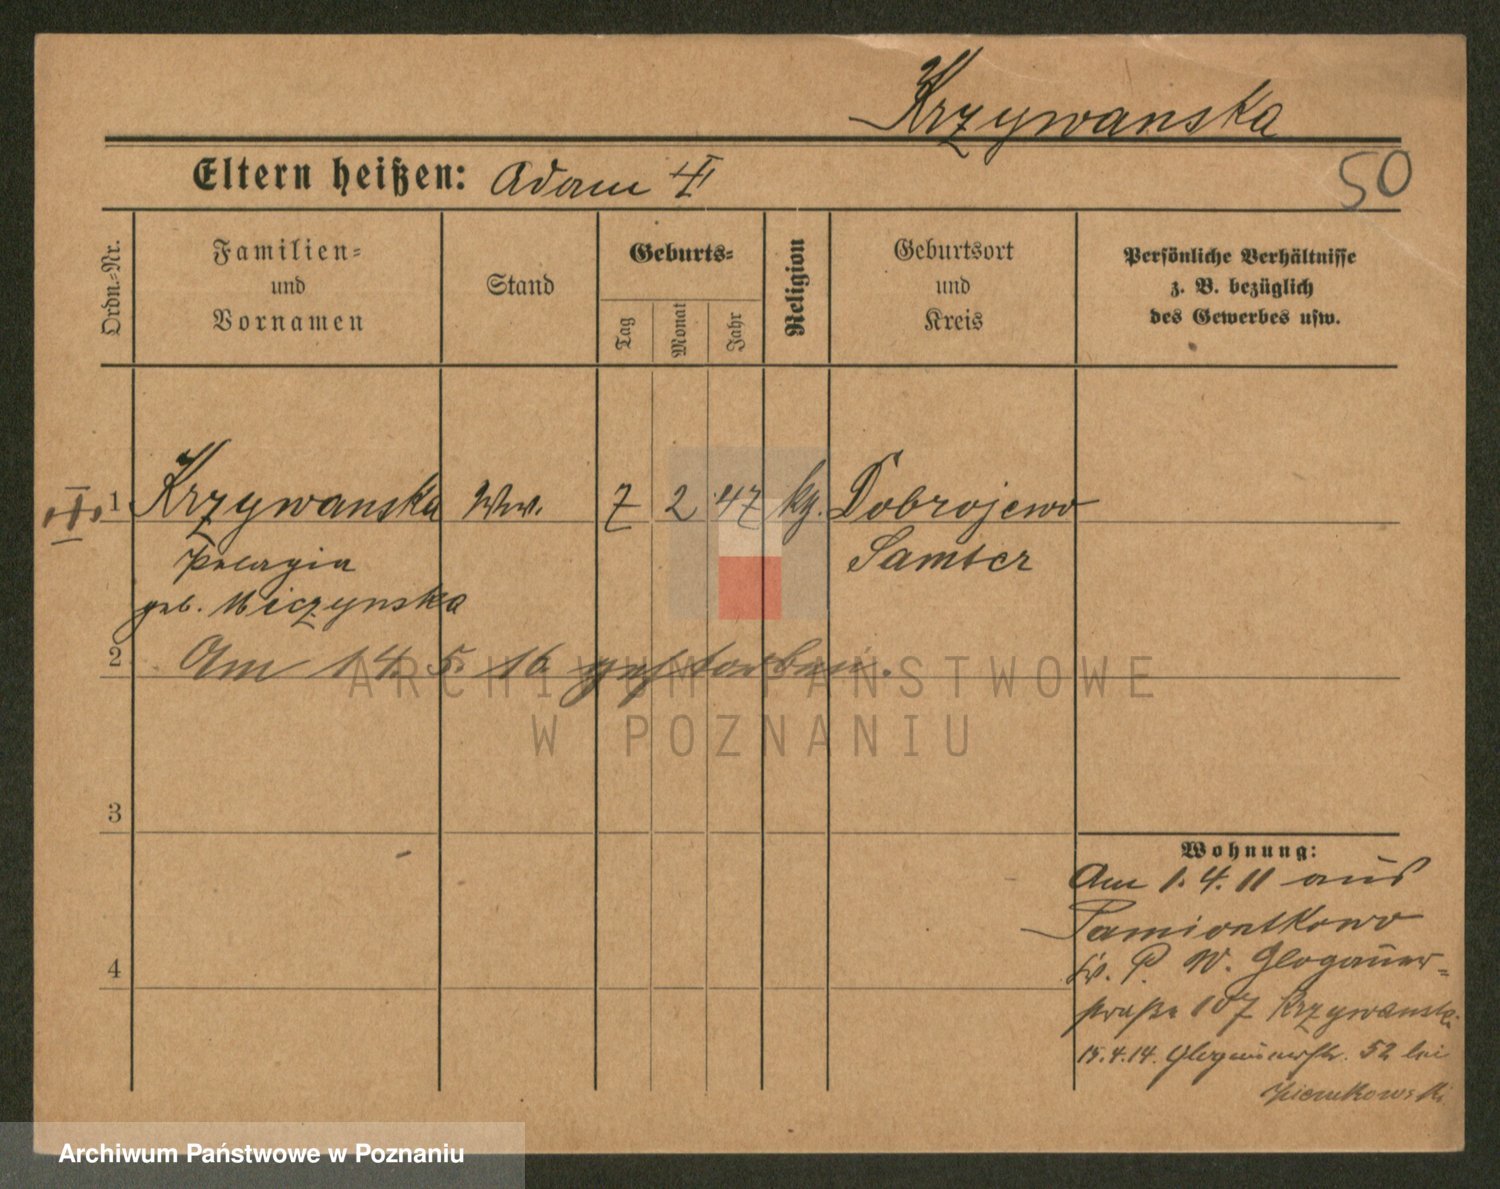 Krzywanska
Eltern heißen: Adam
50
Ordn.-Nr.
Familien-
und
Vornamen
Stand
Geburts-
Tag
Monat
Jahr
Religion
Geburtsort
und
Kreis
Persönliche Verhältnisse
z. B. bezüglich
des Gewerbes usw.
1 Krzywanska Ww. 7 2 47 kg. Dobrojewo
Pelagia Samter
geb. Miczynska
2 Am 14 5. 16 gestorben.
3
4
Wohnung:
Am 1. 4. 11 aus
Samiontkowo
Kr. P. W. Glogauer-
straße 107 Krzywanski
15.4.14. Glogauerstr. 52 bei
ARCHIWUM PAŃSTWOWE
W POZNANIU
Archiwum Państwowe w Poznaniu